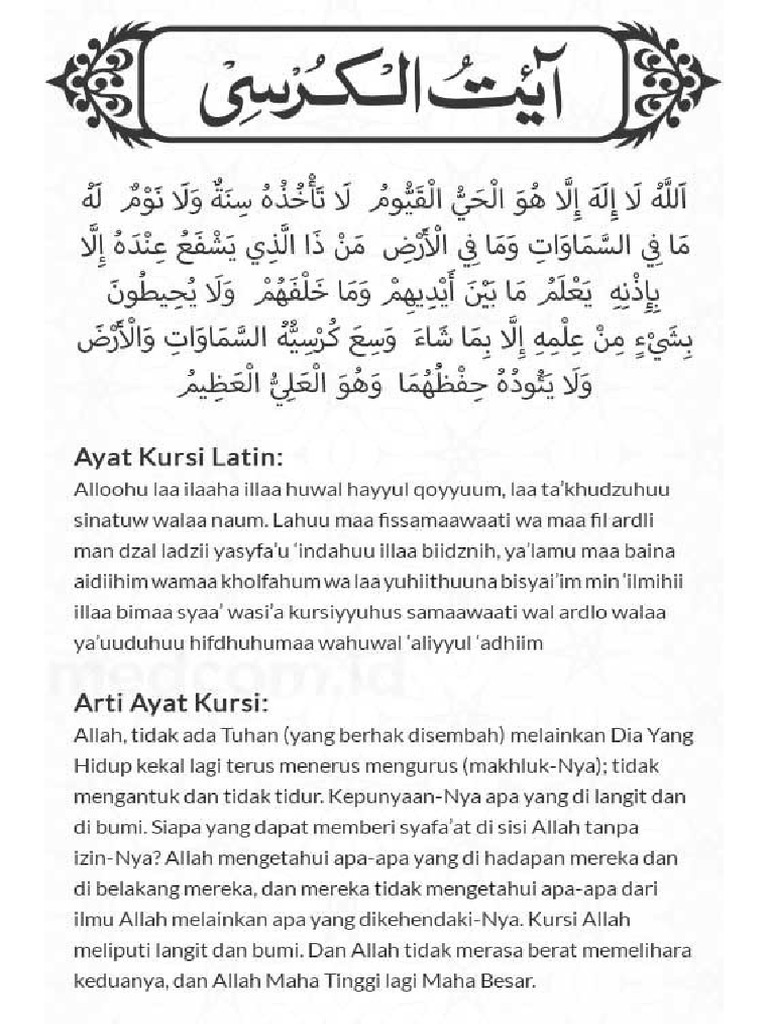 آيَٰتُ الْكُرْسِيْ
اَللَّهُ لَا إِلَهَ إِلَّا هُوَ الْحَيُّ الْقَيُّومُ لَا تَأْخُذُهُ سِنَةٌ وَلَا نَوْمٌ لَهُ
مَا فِي السَّمَاوَاتِ وَمَا فِي الْأَرْضِ مَنْ ذَا الَّذِي يَشْفَعُ عِنْدَهُ إِلَّا
بِإِذْنِهِ يَعْلَمُ مَا بَيْنَ أَيْدِيهِمْ وَمَا خَلْفَهُمْ وَلَا يُحِيطُونَ
بِشَيْءٍ مِنْ عِلْمِهِ إِلَّا بِمَا شَاءَ وَسِعَ كُرْسِيُّهُ السَّمَاوَاتِ وَالْأَرْضَ
وَلَا يَئُودُهُ حِفْظُهُمَا وَهُوَ الْعَلِيُّ الْعَظِيمُ
Ayat Kursi Latin:
Alloohu laa ilaaha illaa huwal hayyul qoyyuum, laa ta’khudzuhuu
sinatuw walaa naum. Lahuu maa fissamaawaati wa maa fil ardli
man dzal ladzii yasyfa’u ‘indahuu illaa biidznih, ya’lamu maa baina
aidiihim wamaa kholfahum wa laa yuhiithuuna bisyai’im min ‘ilmihii
illaa bimaa syaa’ wasi’a kursiyyuhus samaawaati wal ardlo walaa
ya’uuduhuu hifdhuhumaa wahuwal ‘aliyyul ‘adhiim
medcom.id
Arti Ayat Kursi:
Allah, tidak ada Tuhan (yang berhak disembah) melainkan Dia Yang
Hidup kekal lagi terus menerus mengurus (makhluk-Nya); tidak
mengantuk dan tidak tidur. Kepunyaan-Nya apa yang di langit dan
di bumi. Siapa yang dapat memberi syafa’at di sisi Allah tanpa
izin-Nya? Allah mengetahui apa-apa yang di hadapan mereka dan
di belakang mereka, dan mereka tidak mengetahui apa-apa dari
ilmu Allah melainkan apa yang dikehendaki-Nya. Kursi Allah
meliputi langit dan bumi. Dan Allah tidak merasa berat memelihara
keduanya, dan Allah Maha Tinggi lagi Maha Besar.